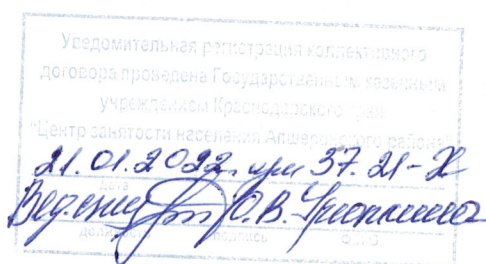 Уведомительная регистрация коллективного
договора проведена Государственным казенным
учреждением Краснодарского края
"Центр занятости населения Апшеронского района"
21.01.2022г. 37.21-
дата
Вед. О.В.
должность подпись Ф.И.О.